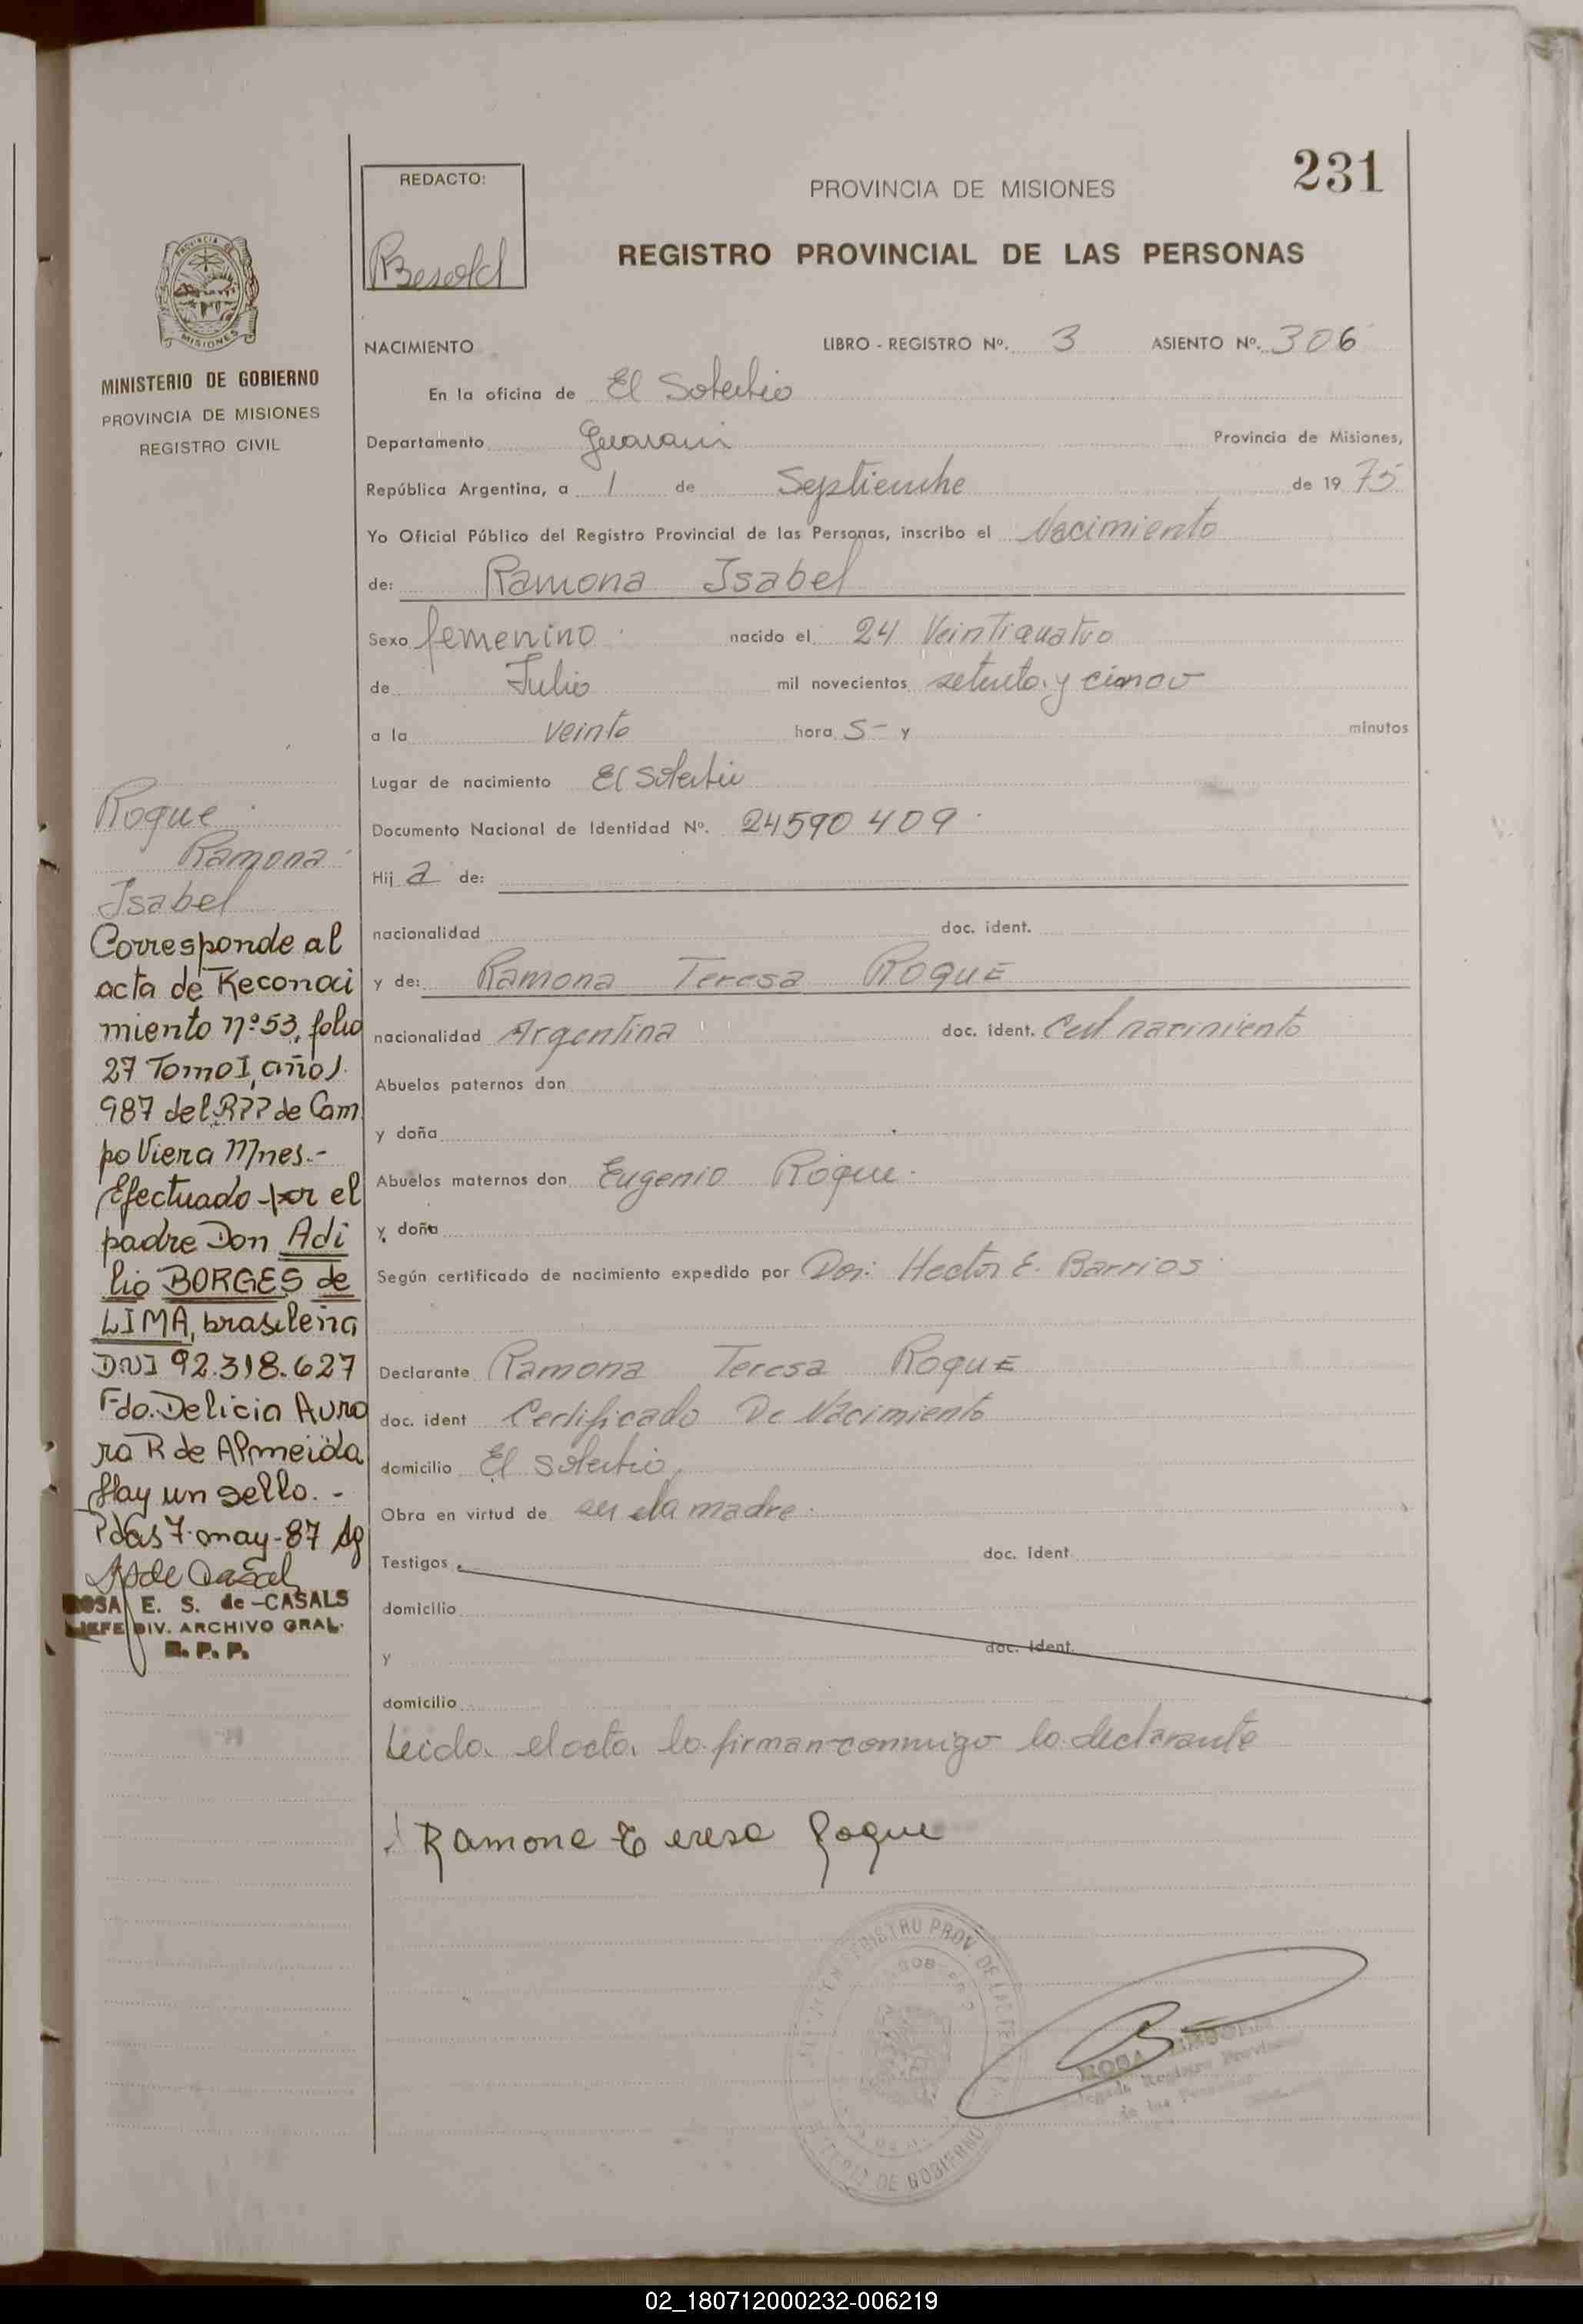 231
REDACTO:
Besold
PROVINCIA DE MISIONES
REGISTRO PROVINCIAL DE LAS PERSONAS
PROVINCIA DE
MISIONES
MINISTERIO DE GOBIERNO
PROVINCIA DE MISIONES
REGISTRO CIVIL
NACIMIENTO LIBRO - REGISTRO Nº. 3 ASIENTO Nº. 306
En la oficina de El Soberbio
Departamento Guarani Provincia de Misiones,
República Argentina, a 1 de Septiembre de 19 75
Yo Oficial Público del Registro Provincial de las Personas, inscribo el Nacimiento
de: Ramona Isabel
Sexo femenino nacido el 24 Veinticuatro
de Julio mil novecientos setenta y cinco
a la veinte hora S- y minutos
Lugar de nacimiento El Soberbio
Documento Nacional de Identidad Nº. 24590409
Hij a de:
nacionalidad doc. ident.
y de: Ramona Teresa ROQUE
nacionalidad Argentina doc. ident. Cert nacimiento
Abuelos paternos don
y doña
Abuelos maternos don Eugenio Roque
y doña
Según certificado de nacimiento expedido por Dor: Hector E. Barrios
Declarante Ramona Teresa ROQUE
doc. ident Certificado De Nacimiento
domicilio El Soberbio
Obra en virtud de ser la madre
Testigos doc. ident
domicilio
y doc. ident.
domicilio
Leida el acta la firman conmigo la declarante
Ramona Teresa Roque
Roque
Ramona
Isabel
Corresponde al
acta de Reconoci
miento nº 53, folio
27 Tomo I, año 1.
987 del R.P.P de Cam
po Viera Mnes.-
Efectuado por el
padre Don Adi
lio BORGES de
LIMA, brasileña
DNI 92.318.627
Fdo. Delicia Auro
ra R de Almeida
Hay un sello.-
Pdas 7-may-87
ROSA E. S. de CASALS
JEFE DIV. ARCHIVO GRAL.
R. P. P.
REGISTRO PROV. DE LAS PE
DE GOBIERNO
Registro Provincial
de las Personas
02_180712000232-006219